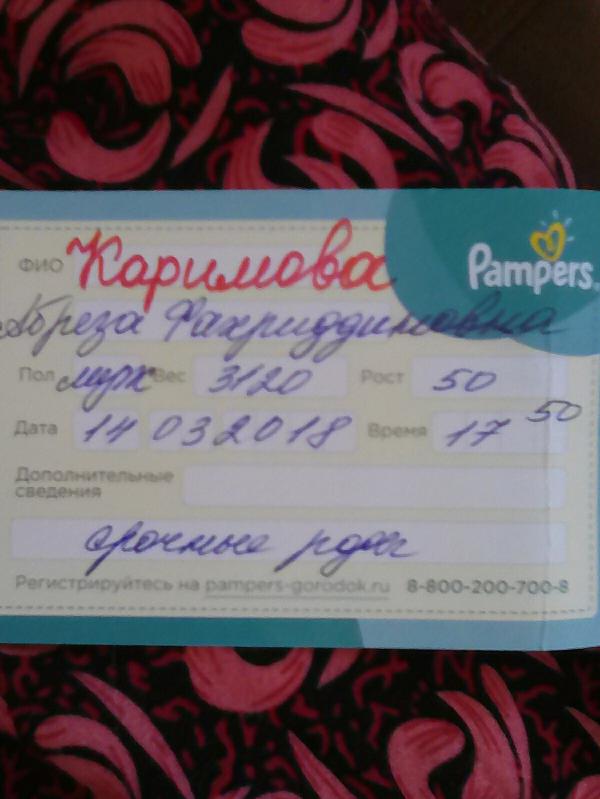 Pampers
ФИО Каримова
Абреза Фахриддиновна
Пол муж Вес 3120 Рост 50
Дата 14 03 2018 Время 17 50
Дополнительные
сведения
срочные роды
Регистрируйтесь на pampers-gorodok.ru 8-800-200-700-8